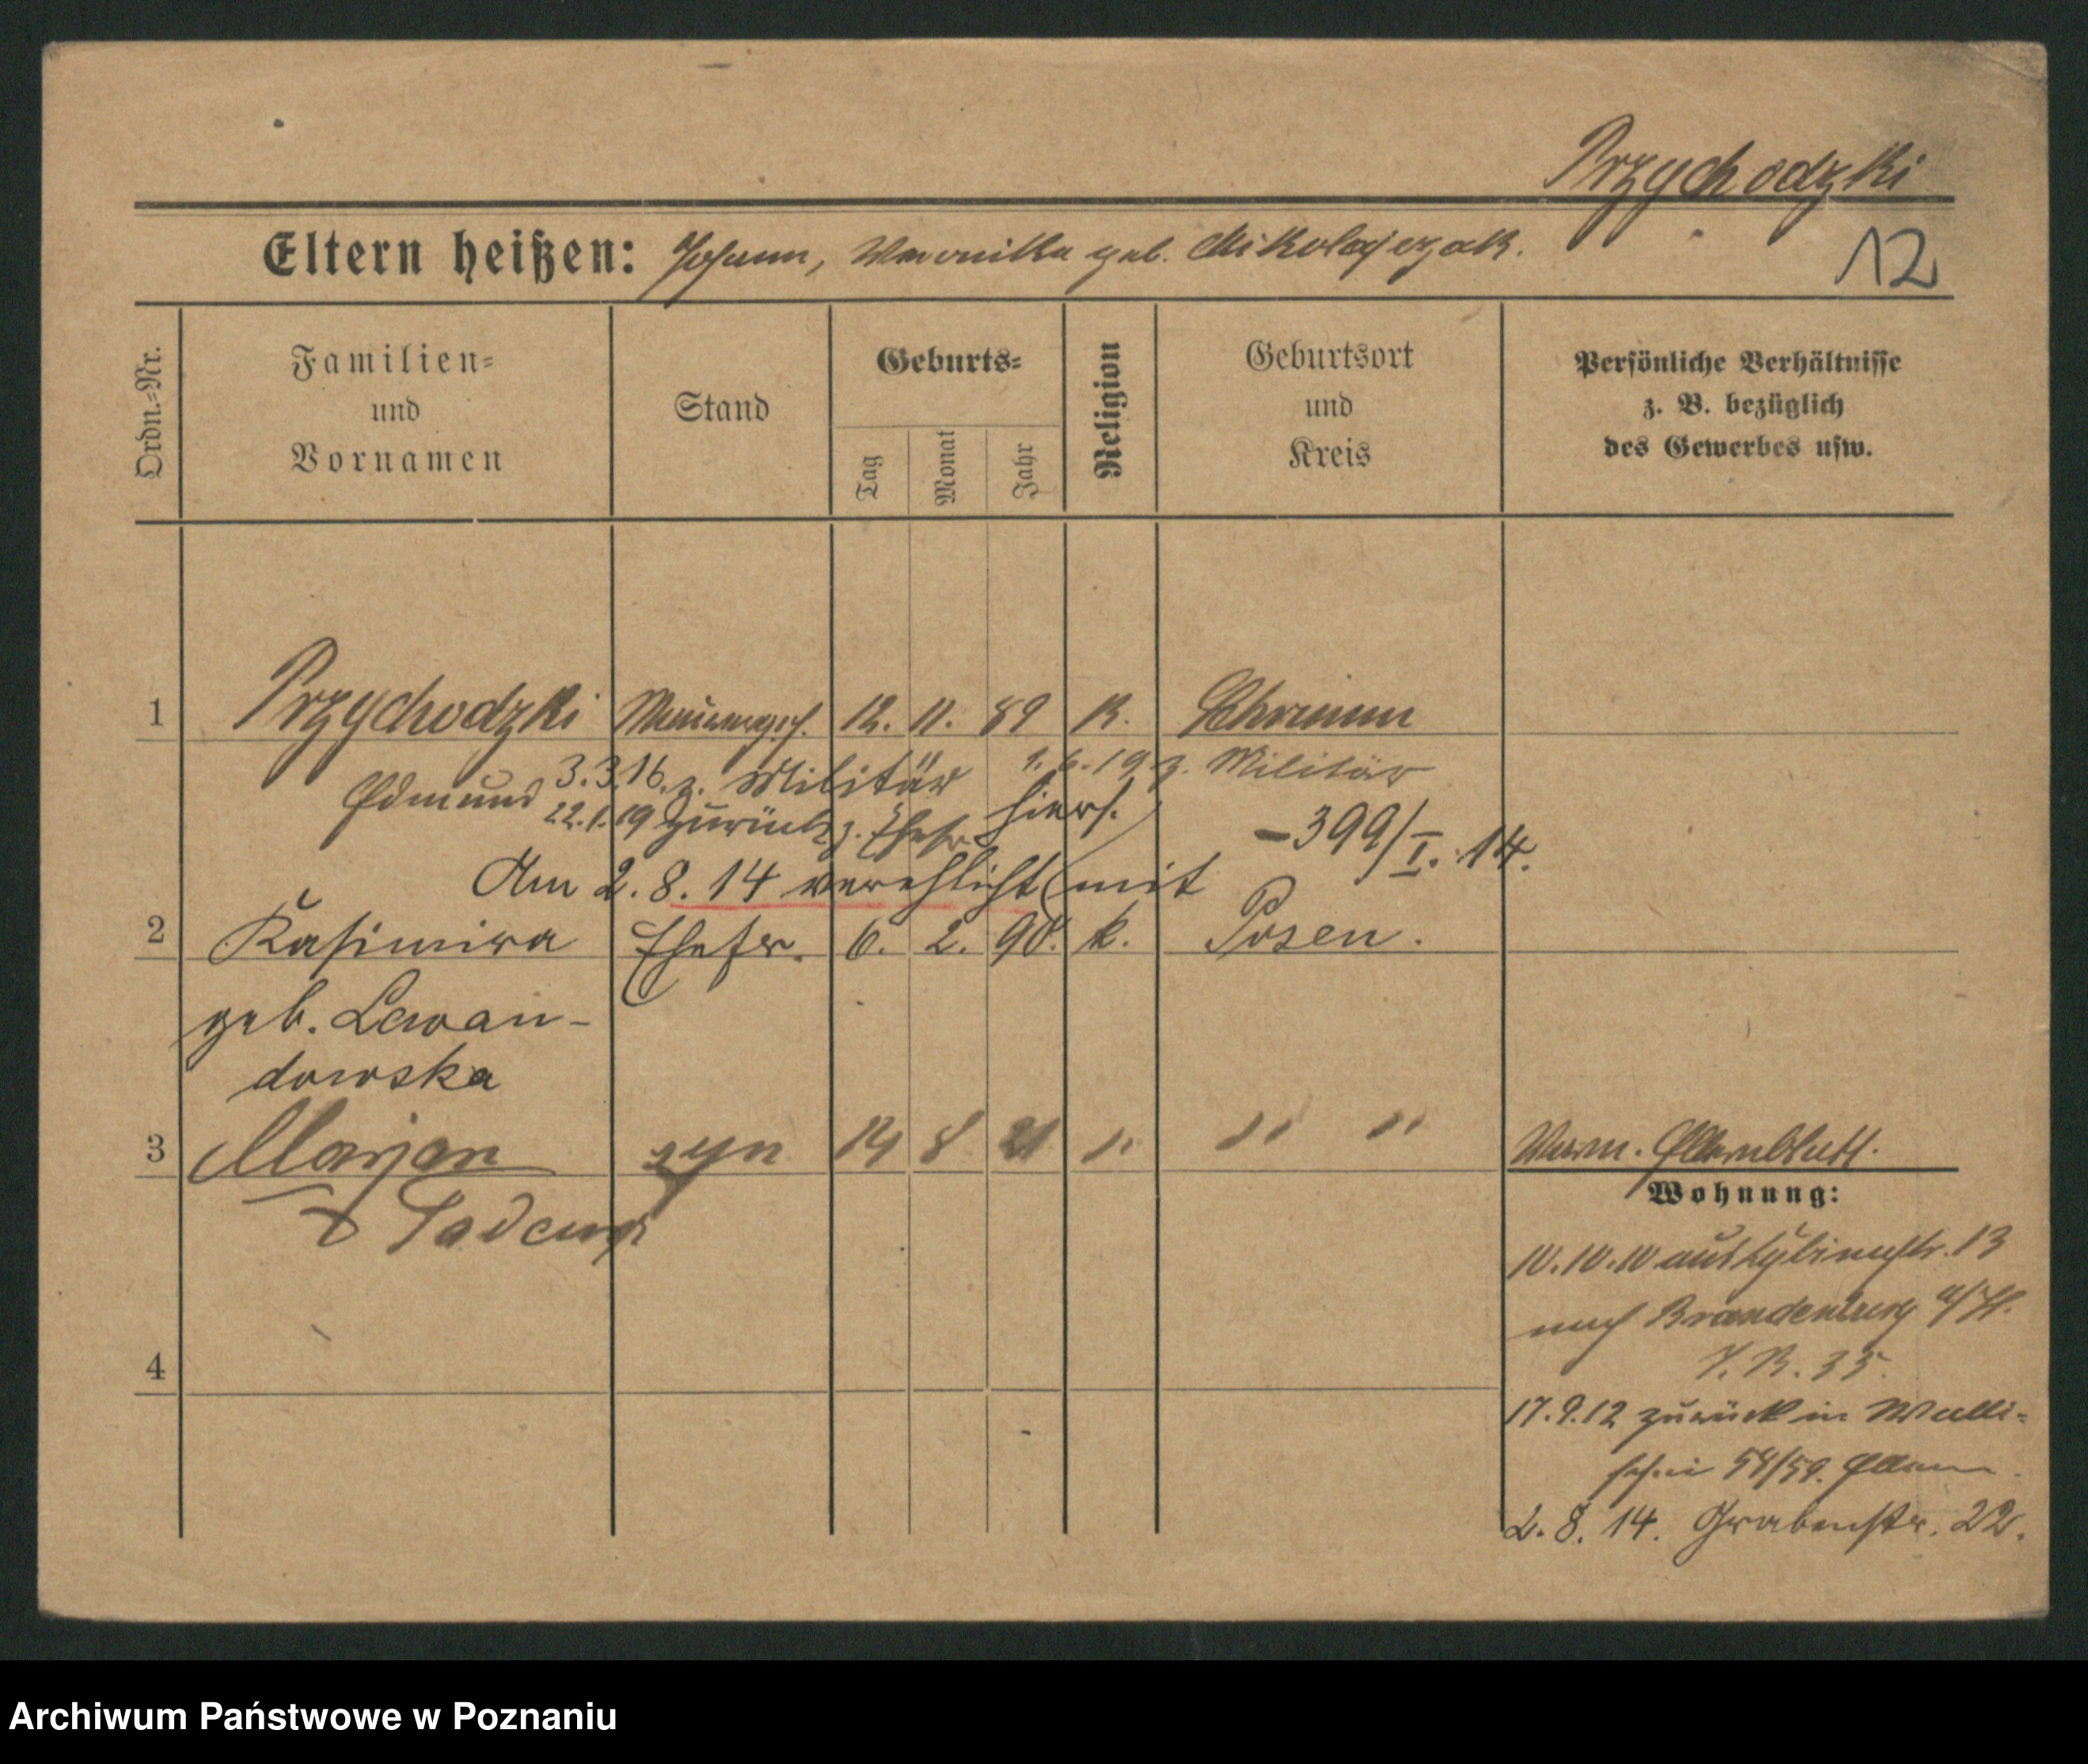 Przychodzki
Eltern heißen: Johann, Veronika geb. Mikolajczak.
12
Ordn.-Nr.
Familien-
und
Vornamen
Stand
Geburts-
Tag
Monat
Jahr
Religion
Geburtsort
und
Kreis
Persönliche Verhältnisse
z. B. bezüglich
des Gewerbes usw.
1 Przychodzki Maurerges. 12. 11. 89 K. Schrimm
Edmund 3.3.16. z. Militär 1.6.19 z. Militär
22.1.19 zurück z. Ehefr. hiers.
-399/I. 14.
Am 2. 8. 14 verehlicht mit
2 Kasimira Ehefr. 6. 2. 90. k. Posen.
geb. Lewan-
dowska
3 Marjan syn 14 8 21 " " "
Verm. Elternblatt.
Wohnung:
10.10.10 aus 13
nach Brandenburg a/H.
F. R. 35
17.9.12 zurück in Walli-
schei 58/59. Eltern
4
2. 8. 14. Grabenstr. 22.
Archiwum Państwowe w Poznaniu